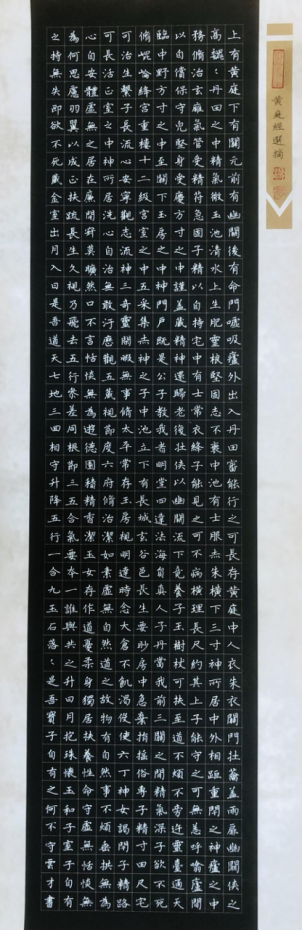 黄庭經選摘
上有黄庭下有關元前有幽闕後有命門嘘吸廬外出入丹田審能行之可長存黄庭中人衣朱衣關門壯籥蓋兩扉幽闕俠之
高巍〻丹田之中精氣微玉池清水上生肥靈根堅固志不衰中池有士服赤朱横下三寸神所居中外相距重閉之神廬之中
務脩治玄廱氣管受精符急固子精以自持宅中有士常衣絳子能見之可不病横理長尺約其上子能守之可無恙呼噏廬間
以自償保守完堅身受慶方寸之中謹蓋藏精神還歸老復壯俠以幽闕流下竟養子玉樹杖可扶至道不煩不旁迕靈臺通天
臨中野方寸之中至關下玉房之中神門户既是公子教我者明堂四達法海員真人子丹當我前三關之間精氣深子欲不死
脩崐崘絳宮重樓十二級宮室之中五采集赤神之子中池立下有長城玄谷邑長生要眇房中急棄捐摇俗專子精寸田尺宅
可治生繫子長流心安寧觀志流神三奇靈閒暇無事脩太平常存玉房視明達時念大倉不飢渴役使六丁神女謁閉子精路
可長活正室之中神所居洗心自治無敢汙歷觀五藏視節度六府脩治潔如素虚無自然道之故物有自然事不煩垂拱無為
心自安體虚無之居在廉間寂莫曠然口不言恬惔無為遊德園積精香潔玉女存作道憂柔身獨居扶養性命守虚無恬惔無
為何思慮羽翼以成正扶疏長生久視乃飛去五行參差同根節三五合氣要本一誰與共之升日月抱珠懷玉和子室子自有
之持無失即欲不死藏金室出月入日是吾道天七地三回相守升降五行一合九玉石落〻是吾寶子自有之何不守雲才書